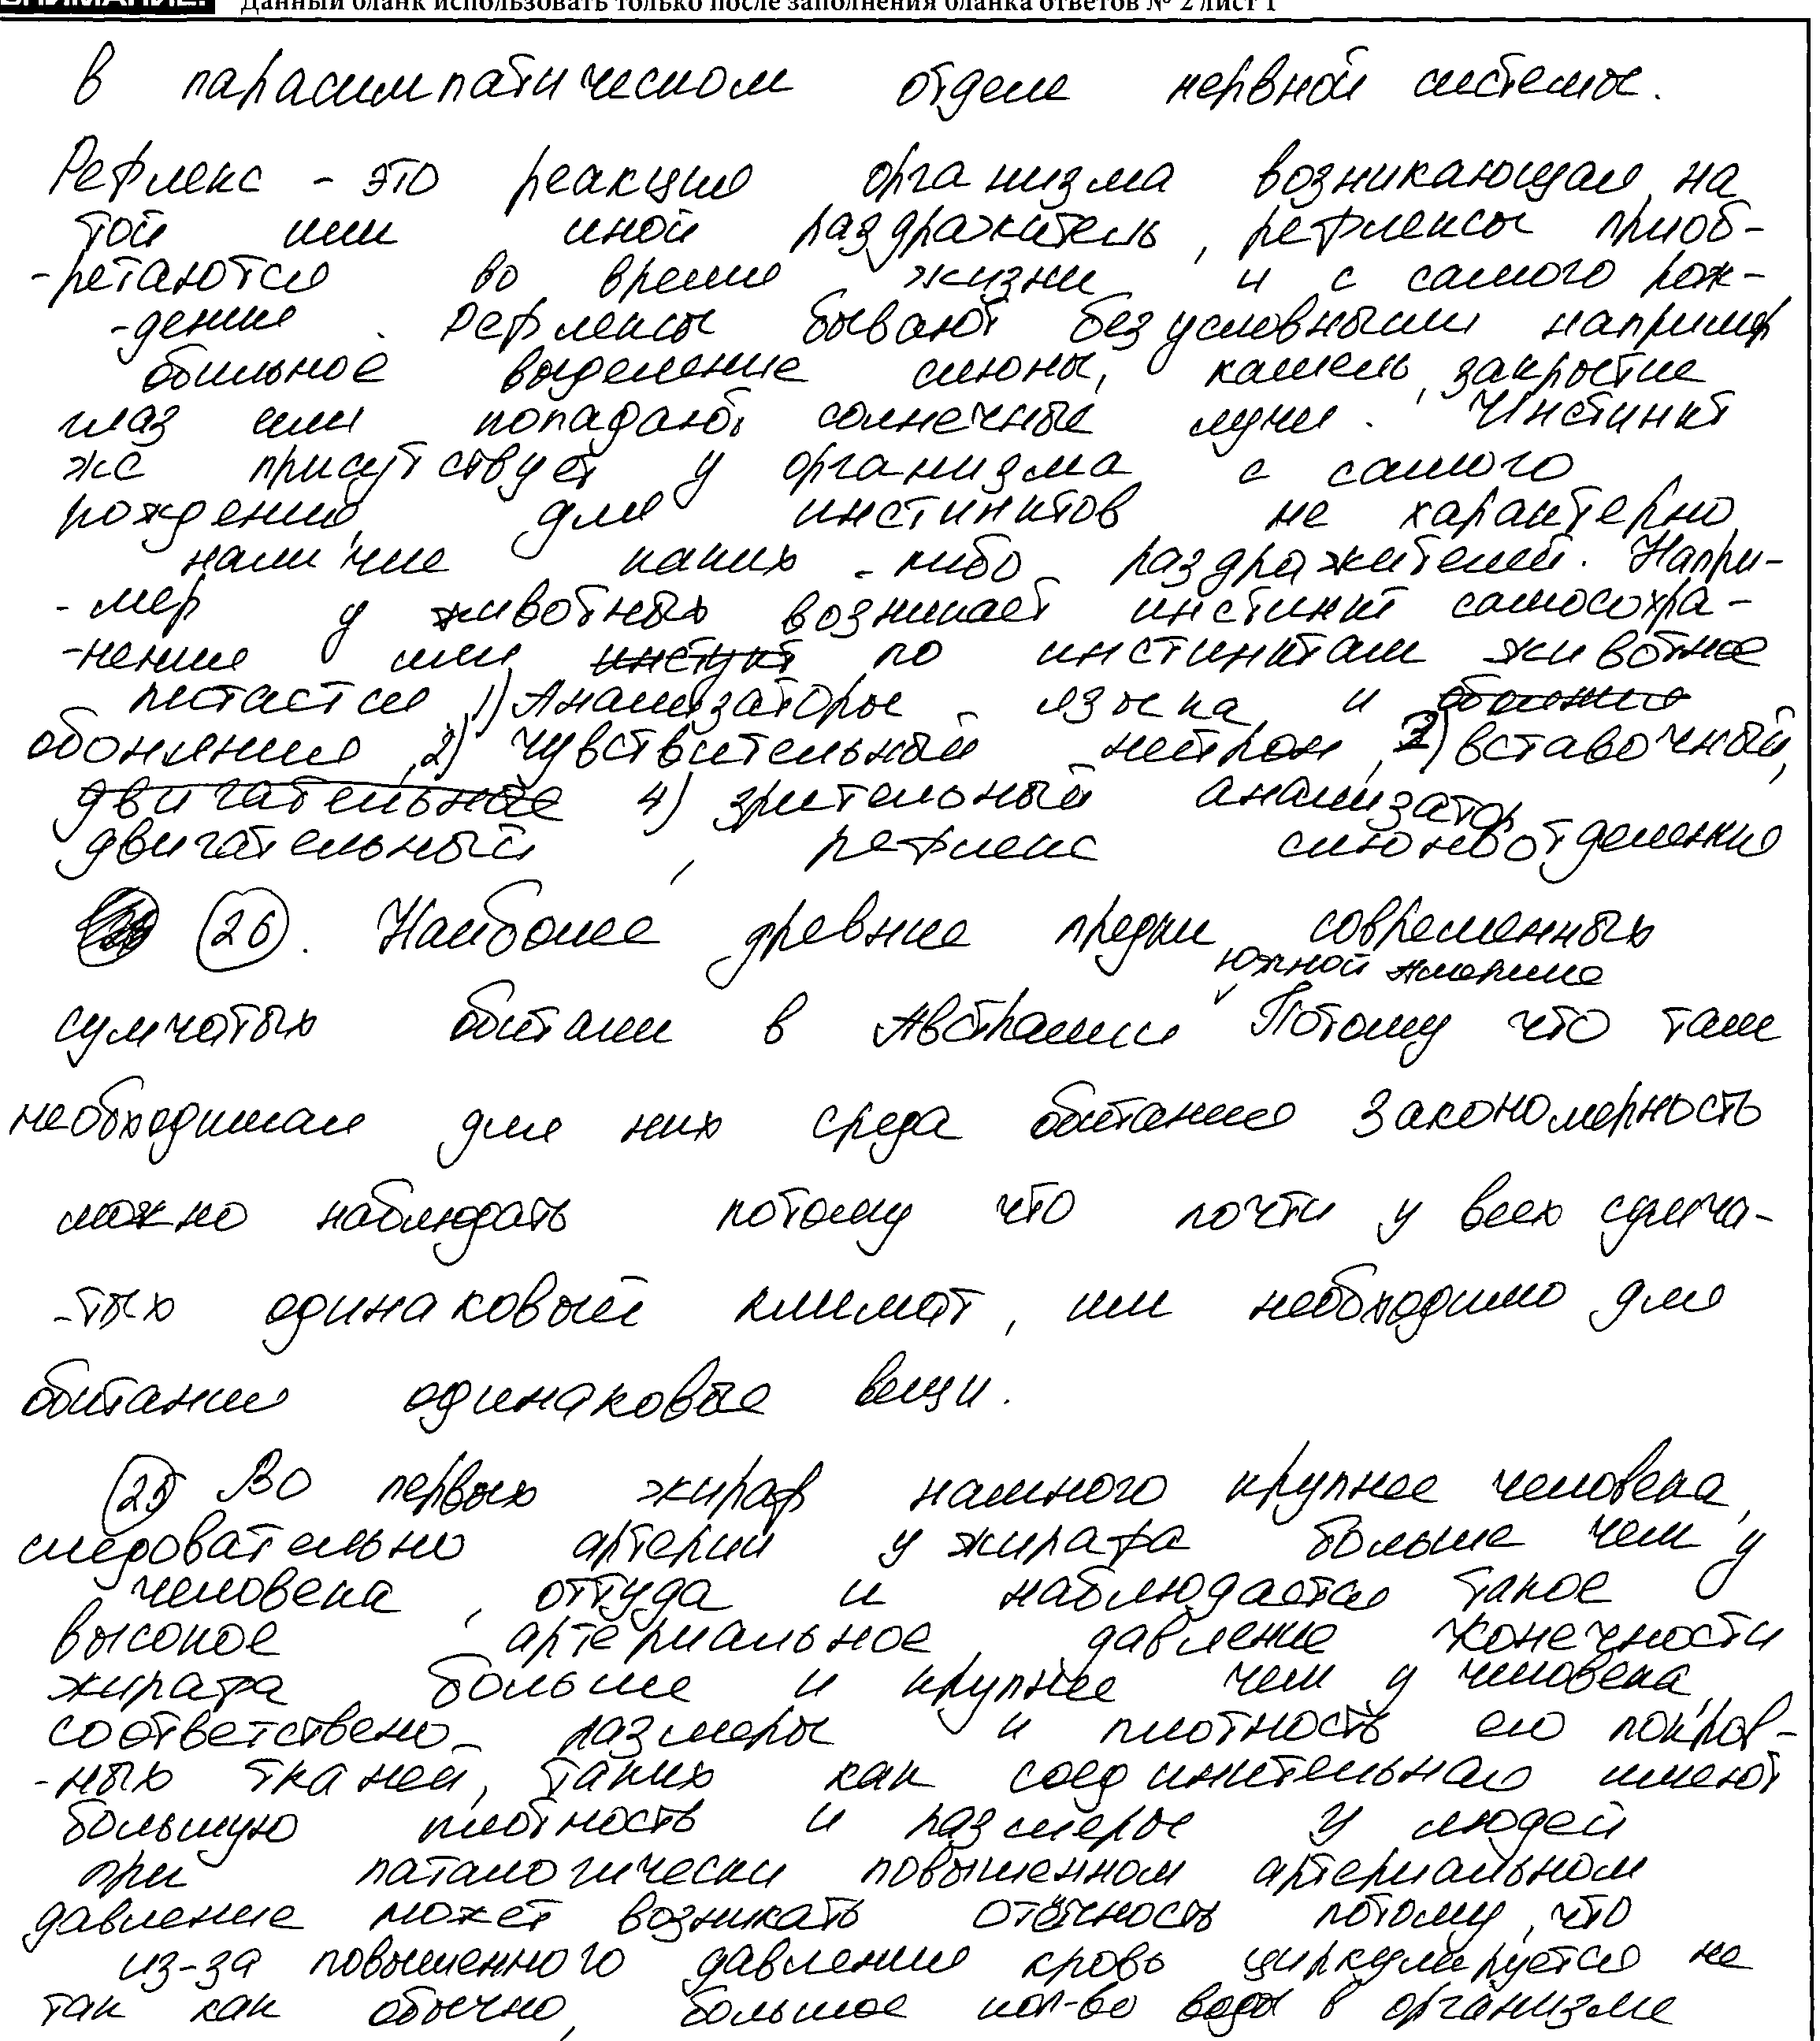 ВНИМАНИЕ! Данный бланк использовать только после заполнения бланка ответов № 2 лист 1
в парасимпатическом отделе нервной системы.
Рефлекс - это реакция организма возникающая на
той или иной раздражитель, рефлексы приоб-
-ретаются во время жизни и с самого рож-
-дения. Рефлексы бывают безусловными например
обильное выделение слюны, кашель, закрытие
глаз или попадают солнечные лучи. Инстинкт
же присутствует у организма с самого
рождения, для инстинктов не характерно
наличие каких-либо раздражителей. Напри-
-мер у животных возникает инстинкт самосохра-
-нения или инстукт по инстинктам животное
питается 1) Анализаторы - языка и
обоняния, 2) чувствительный нейрон, 3) вставочный,
двигательные 4) зрительный анализатор
двигательный, рефлекс слюноотделения
(26). Наиболее древние предки современных
южной америке
сумчатых обитали в Австралии Потому что там
необходимая для них среда обитания Закономерность
можно наблюдать потому что почти у всех сумча-
-тых одинаковый климат, им необходимо для
обитания одинаковые вещи.
(25) Во первых жираф намного крупнее человека,
следовательно артерии у жирафа больше чем у
человека, оттуда и наблюдается такое
высокое артериальное давление Конечности
жирафа больше и крупнее чем у человека,
соответствено размеры и плотность его покров-
-ных тканей, таких как соединительная имеют
большую плотность и размеры У людей
при паталогически повышенном артериальном
давление может возникать отёчность потому, что
из-за повышенного давления кровь циркулируется не
так как обычно, большое кол-во воды в организме